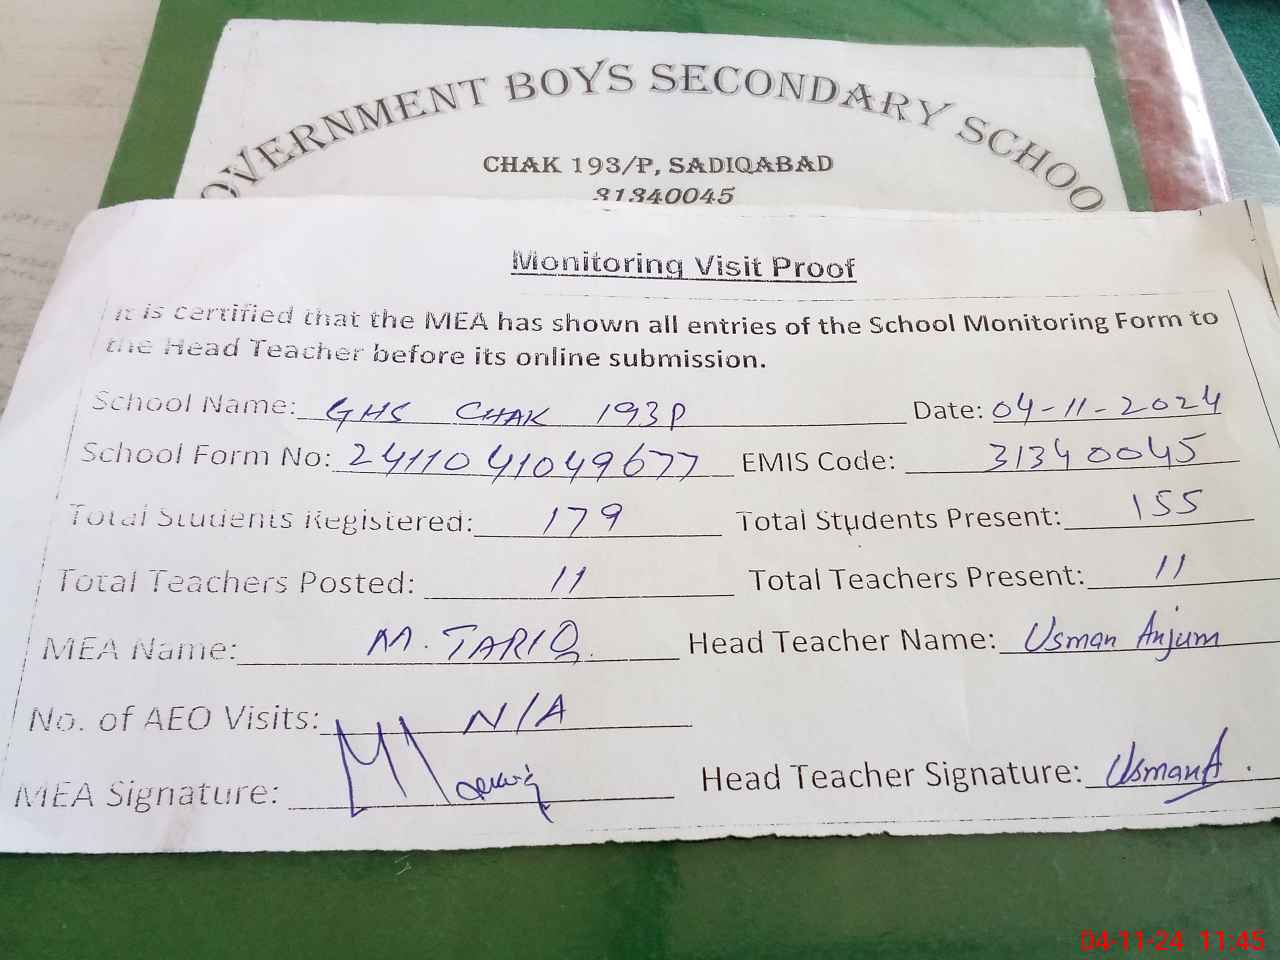 OVERNMENT BOYS SECONDARY SCHOO
CHAK 193/P, SADIQABAD
31340045
Monitoring Visit Proof
It is certified that the MEA has shown all entries of the School Monitoring Form to
the Head Teacher before its online submission.
School Name: GHS CHAK 193P Date: 04-11-2024
School Form No: 2411041049677 EMIS Code: 31340045
Total Students Registered: 179 Total Students Present: 155
Total Teachers Posted: 11 Total Teachers Present: 11
MEA Name: M. TARIQ. Head Teacher Name: Usman Anjum
No. of AEO Visits: N/A
MEA Signature: Head Teacher Signature: UsmanA.
04-11-24 11:45